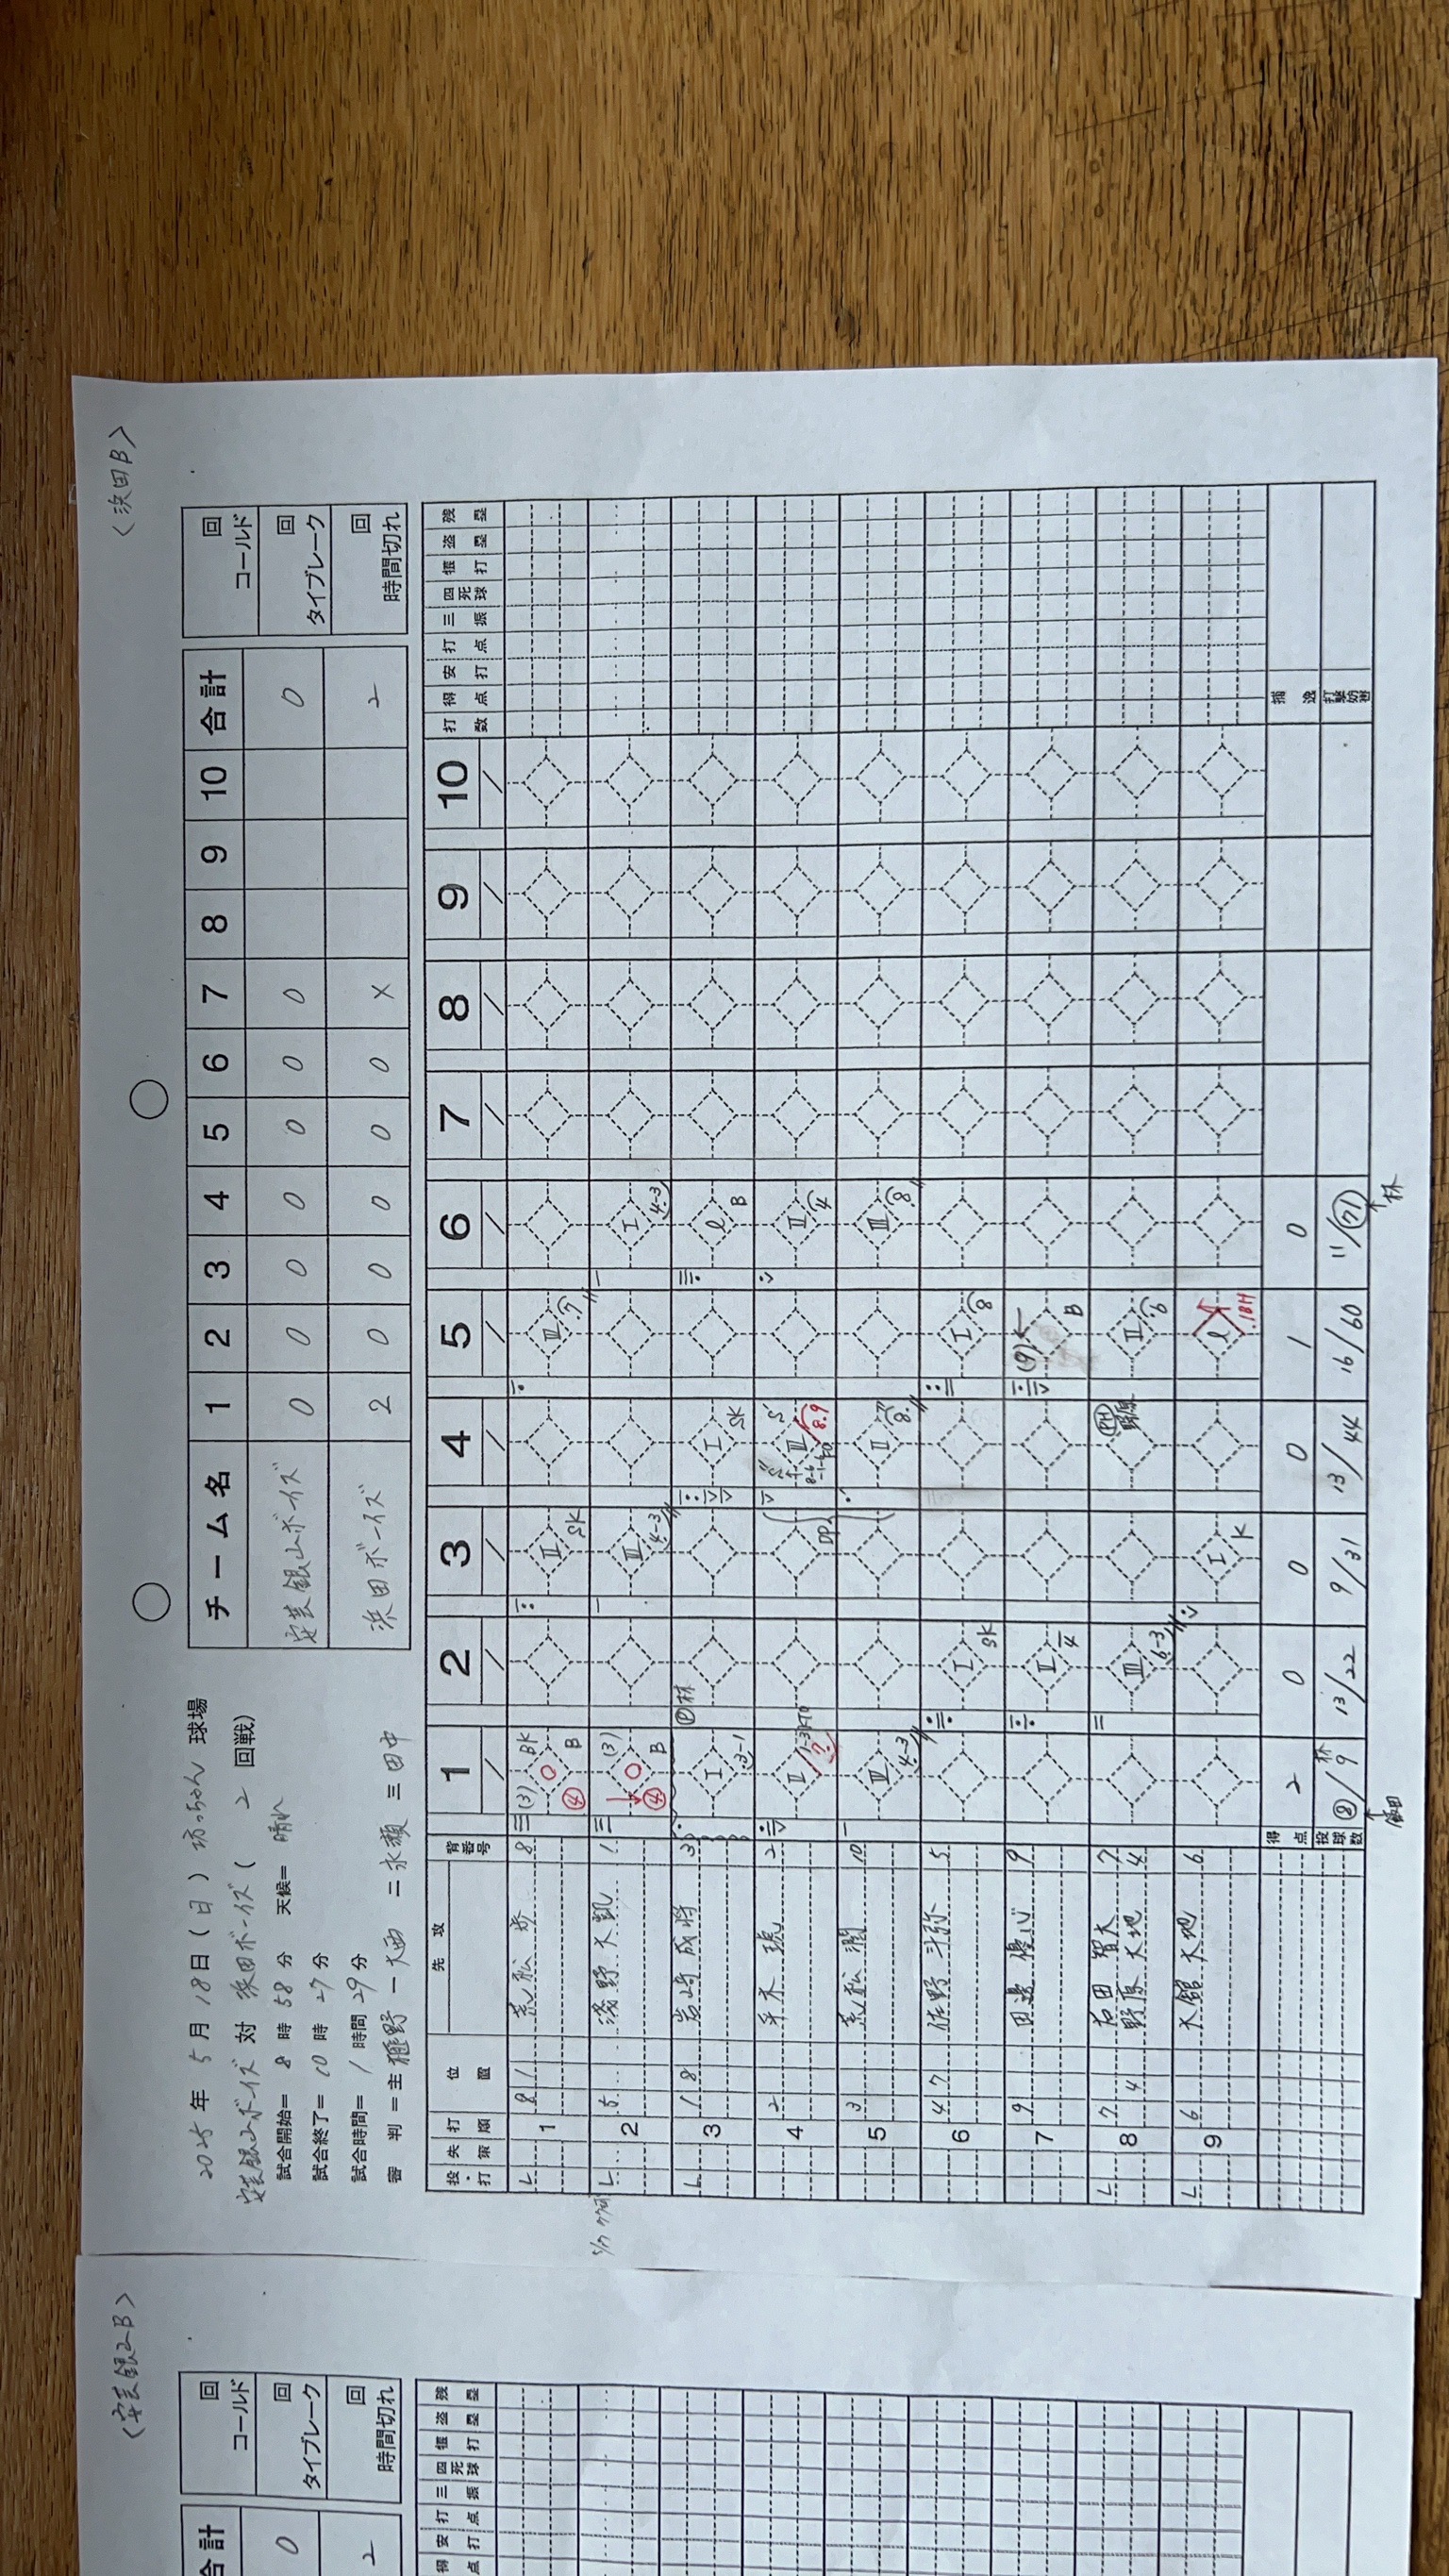 〈浜田B〉
2025年 5月 18日(日) 坊っちゃん 球場
安芸銀山ボーイズ 対 浜田ボーイズ ( 2 回戦)
試合開始= 8 時 58 分 天候= 晴れ
試合終了= 10 時 27 分
試合時間= 1 時間 29 分
審 判 =主 一 大西 二 永瀬 三 田中
チーム名 1 2 3 4 5 6 7 8 9 10 合計
安芸銀山ボーイズ 0 0 0 0 0 0 0 0
浜田ボーイズ 2 0 0 0 0 0 X 2
回 コールド
回 タイブレーク
回 時間切れ
投・打 失策 打順 位置 先攻 背番号 1 2 3 4 5 6 7 8 9 10 打数 得点 安打 打点 三振 四死球 犠打 盗塁 残塁
L 1 8 1 荒松 歩 8 (3) BK B ④ II SK III 7
L 2 5 浅野 大凱 1 (3) B ④ III 4-3 I 4-3
L 3 1 8 岩崎 成将 3 I 3-1 Ⓟ林 I SK l B
4 2 平木 琥 2 II 1-3 DP III S' 8.9 II 4
5 3 荒松 潤 10 III 4-3 II 8 III 8
6 4 7 佐野 斗弥 5 I SK I 8
7 9 田邊 優心 9 II 4 (9) B
L 8 7 古田 智大 7 III 6-3 PH 野原 II 6
4 野原 大地 4
L 9 6 大舘 大地 6 I K l 1BH
得点 2 0 0 0 1 0
投球数 ⑧/9 13/22 9/31 13/44 16/60 11/71
林 飯田 林
捕逸
打撃妨害
〈安芸銀山B〉
合計
0
2
回 コールド
回 タイブレーク
回 時間切れ
得点 安打 打点 三振 四死球 犠打 盗塁 残塁